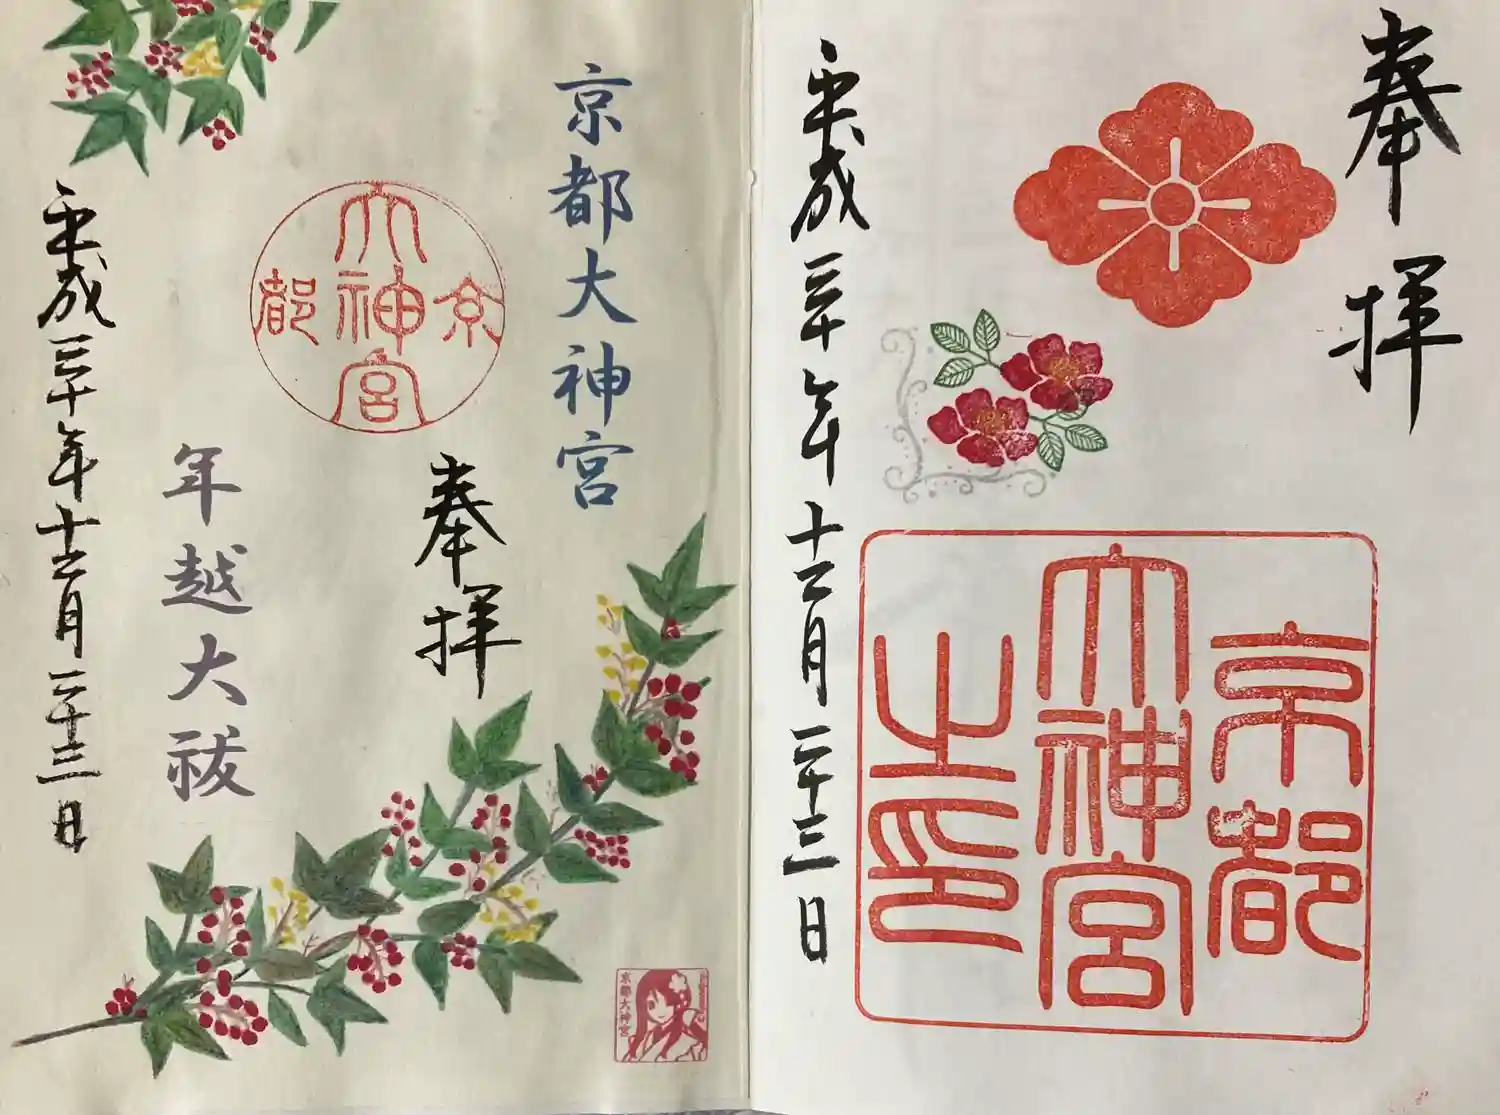 奉拝
京都
大神宮
之印
平成三十年十二月二十三日
京都大神宮
奉拝
京都
大神宮
年越大祓
平成三十年十二月二十三日
京都大神宮